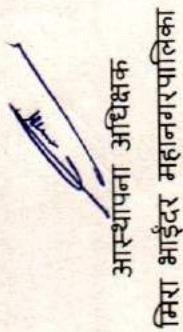 आस्थापना अधिक्षक
मिरा भाईंदर महानगरपालिका